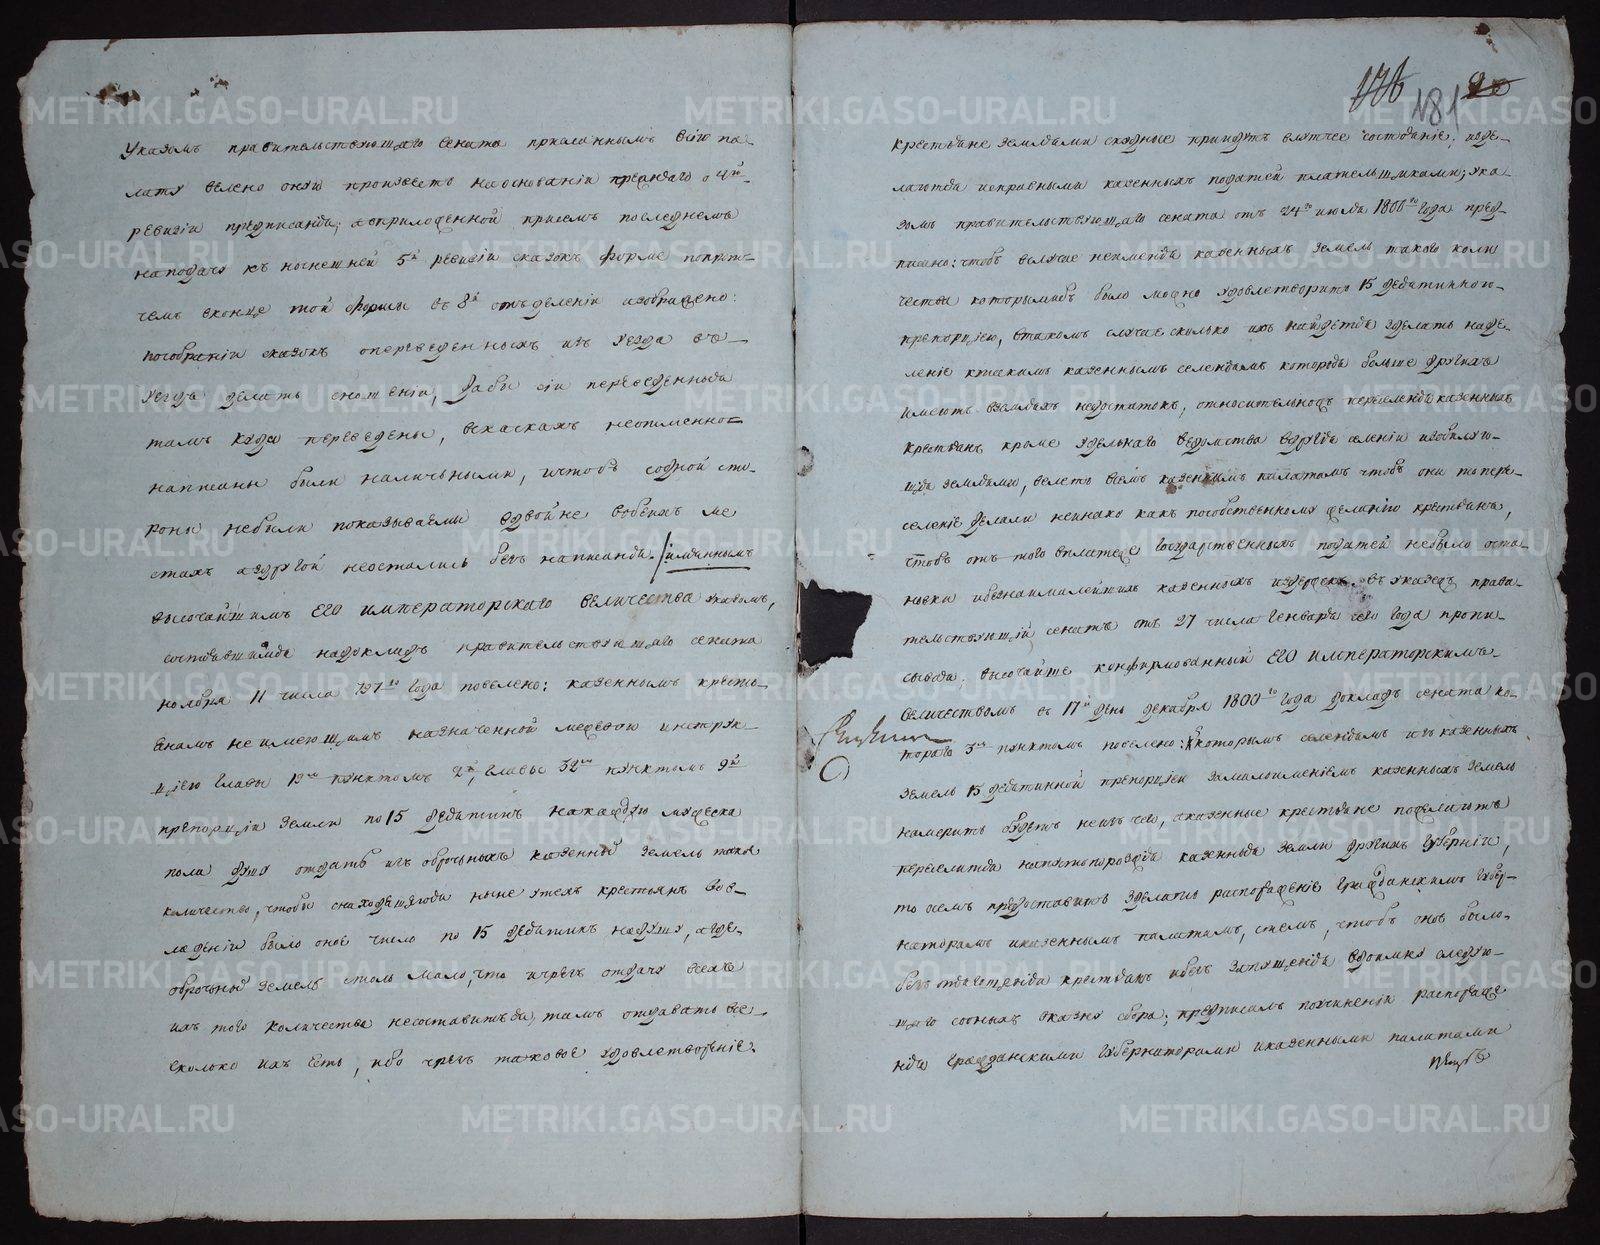 указомъ правительствующаго сената присланнымъ всию па-
лату велено оную произвесть наоснованіи прежнаго о 4й
ревизіи предписанія; априложенной присемъ последнемъ
наподачу къ нонешней 5й ревизіи сказокъ форме попрот-
чемъ вконце той формы въ 8й отъделеніи изображено:
пособраніи сказокъ опереведенныхъ изъ уезда въ
уездъ делать сношеніи, дабы сіи переведенныя
тамъ куда переведены, всказкахъ неотменно
написаны были наличными, ичтобъ содной сто-
роны небыли показываемы вдвойне вобеихъ ме
стахъ адругой неостались безъ написанія. / имяннымъ
высочайшимъ его императорскаго величества указомъ,
состоявшимся надокладъ правительствующаго сената
ноября 11 числа 797го года повелено: казеннымъ кресть-
янамъ неимеющимъ назначенной межевою инструк-
циею главы 19й пунктомъ 2й, главы 32й пунктомъ 9й
препорціи земли по 15 десятинъ накаждую мужеска
пола душу отдать изъ оброчныхъ казенныхъ земель такое
количество, чтобы снаходящагося ныне утехъ крестьянъ вов-
ладеніи было оное число по 15 десятинъ надушу, агде
оброчныхъ земель столь мало, что ичрезъ отдачу всехъ
ихъ того количества несоставится, тамъ отдавать все
сколько ихъ есть, ибо чрезъ таковое удовлетвореніе
176 181 20
крестьяне землями скудные придутъ влутчее состояніе, изде-
лаются исправными казенныхъ податей плательщиками; ука-
зомъ правительствующаго сената отъ 24го июля 1800го года пред-
писано: чтобъ вслучае неименія казенныхъ земель такого коли
чества которымибъ было можно удовлетворить 15 десятинною
препорциею, втакомъ случае сколько ихъ найдется зделать наде-
леніе ктакимъ казеннымъ селеніямъ которыя больше другихъ
имеютъ вземляхъ недостатокъ, относительножъ переселенія казенныхъ
крестьянъ кроме удельнаго ведомства вдругія селеніи изобилую-
щія землями, велеть всемъ казеннымъ палатамъ чтобъ они топере-
селеніе делали неинако какъ пособственному желанію крестьянъ,
чтобъ отъ того вплатеже государственныхъ податей небыло оста-
новки ибезнаималейшихъ казенныхъ издержекъ. въ указежъ прави-
тельствующій сенатъ отъ 27 числа генваря сего года пропи-
сывая, высочайше конфирмованный его императорскимъ
величествомъ въ 17й день декабря 1800го года докладъ сената ко-
тораго 3мъ пунктомъ повелено: которымъ селеніямъ изъ казенныхъ
земель 15 десятинной препорціи замалоименіемъ казенныхъ земель
намерить будетъ неизъчего, аказенные крестьяне пожелаютъ
переселится напустопорозжія казенныя земли другихъ губерніи,
то осемъ предоставить зделать распоряженіе гражданскимъ губер-
наторамъ иказеннымъ палатамъ, стемъ, чтобъ оное было
безъ отягощенія крестьянъ ибезъ запущенія вдоимку следую-
щаго соныхъ вказну сбора; предписалъ поучиненіи распоряже
нія гражданскими губернаторами иказенными палатами